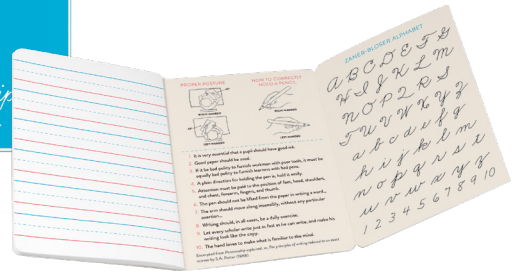 ip
PROPER POSTURE
HOW TO CORRECTLY
HOLD A PENCIL
RIGHT-HANDED
LEFT-HANDED
RIGHT-HANDED
LEFT-HANDED
1. It is very essential that a pupil should have good ink.
2. Good paper should be used.
3. If it be bad policy to furnish workmen with poor tools, it must be
equally bad policy to furnish learners with bad pens.
4. A plain direction for holding the pen is; hold it easily.
5. Attention must be paid to the position of feet, head, shoulders,
and chest, forearm, fingers, and thumb.
6. The pen should not be lifted from the paper in writing a word...
7. The arm should move along insensibly, without any particular
exertion...
8. Writing should, in all cases, be a daily exercise.
9. Let every scholar write just as fast as he can write, and make his
writing look like the copy.
10. The hand loves to make what is familiar to the mind.
ZANER-BLOSER ALPHABET
A B C D E F G
H I J K L M
N O P Q R S
T U V W X Y Z
a b c d e f g
h i j k l m
n o p q r s t
u v w x y z
1 2 3 4 5 6 7 8 9 10